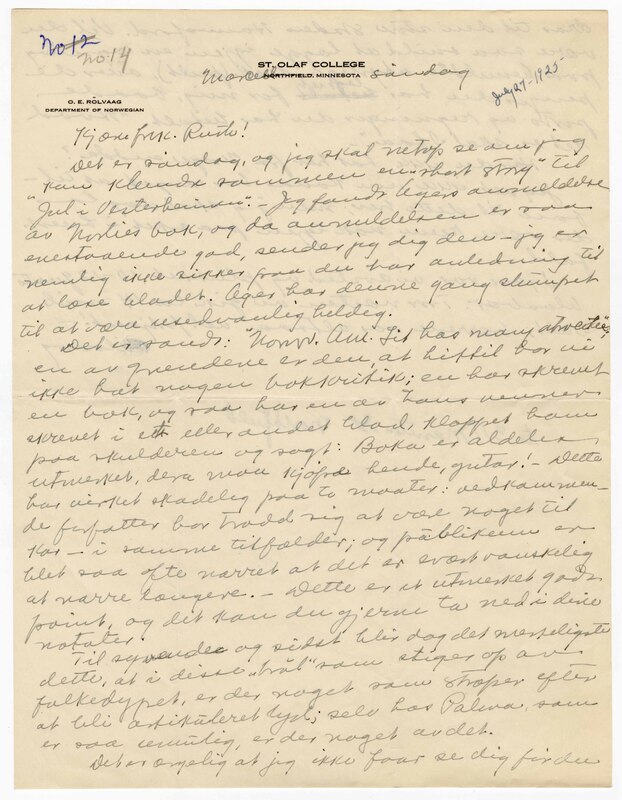 No 12
No. 14
ST. OLAF COLLEGE
NORTHFIELD, MINNESOTA
Marcell søndag
July 27-1925
O. E. ROLVAAG
DEPARTMENT OF NORWEGIAN
Kjære frk. Rush!
Det er søndag, og jeg skal netop se om jeg
kan klemde sammen en "short story" til
"Jul i Vesterheimen". - Jeg fandt Agers anmeldelse
av Norlies bok, og da anmeldelsen er saa
enestaaende god, sender jeg dig den - jeg er
nemlig ikke sikker paa du har anledning til
at læse bladet. Ager har denne gang slumpet
til at være usedvanlig heldig.
Det er sandt: "Norw. Am. Lit has many
en av grundene er den, at hittil har vi
ikke hat nogen bokkritik; en har skrevet
en bok, og saa har en av hans venner
skrevet i ett eller andet blad, klappet ham
paa skulderen og sagt: Boka er aldeles
utmerket, dera maa kjøpe hende, gutar! - Dette
har virket skadelig paa to maater: vedkommen-
de forfatter har trodd sig at være noget til
kar - i somme tilfælder; og publikum er
blet saa ofte narret at det er svært vanskelig
at narre længere. - Dette er et utmerket godt
point, og det kan du gjerne ta ned i dine
notater.
Til syvende og sidst blir dog det merkeligste
dette, at i disse "brøl" som stiger op av
folkedypet, er der noget som stræper efter
at bli artikuleret lyd; selv hos Palma, som
er saa umulig, er der noget av det.
Det er ærgelig at jeg ikke faar se dig før du